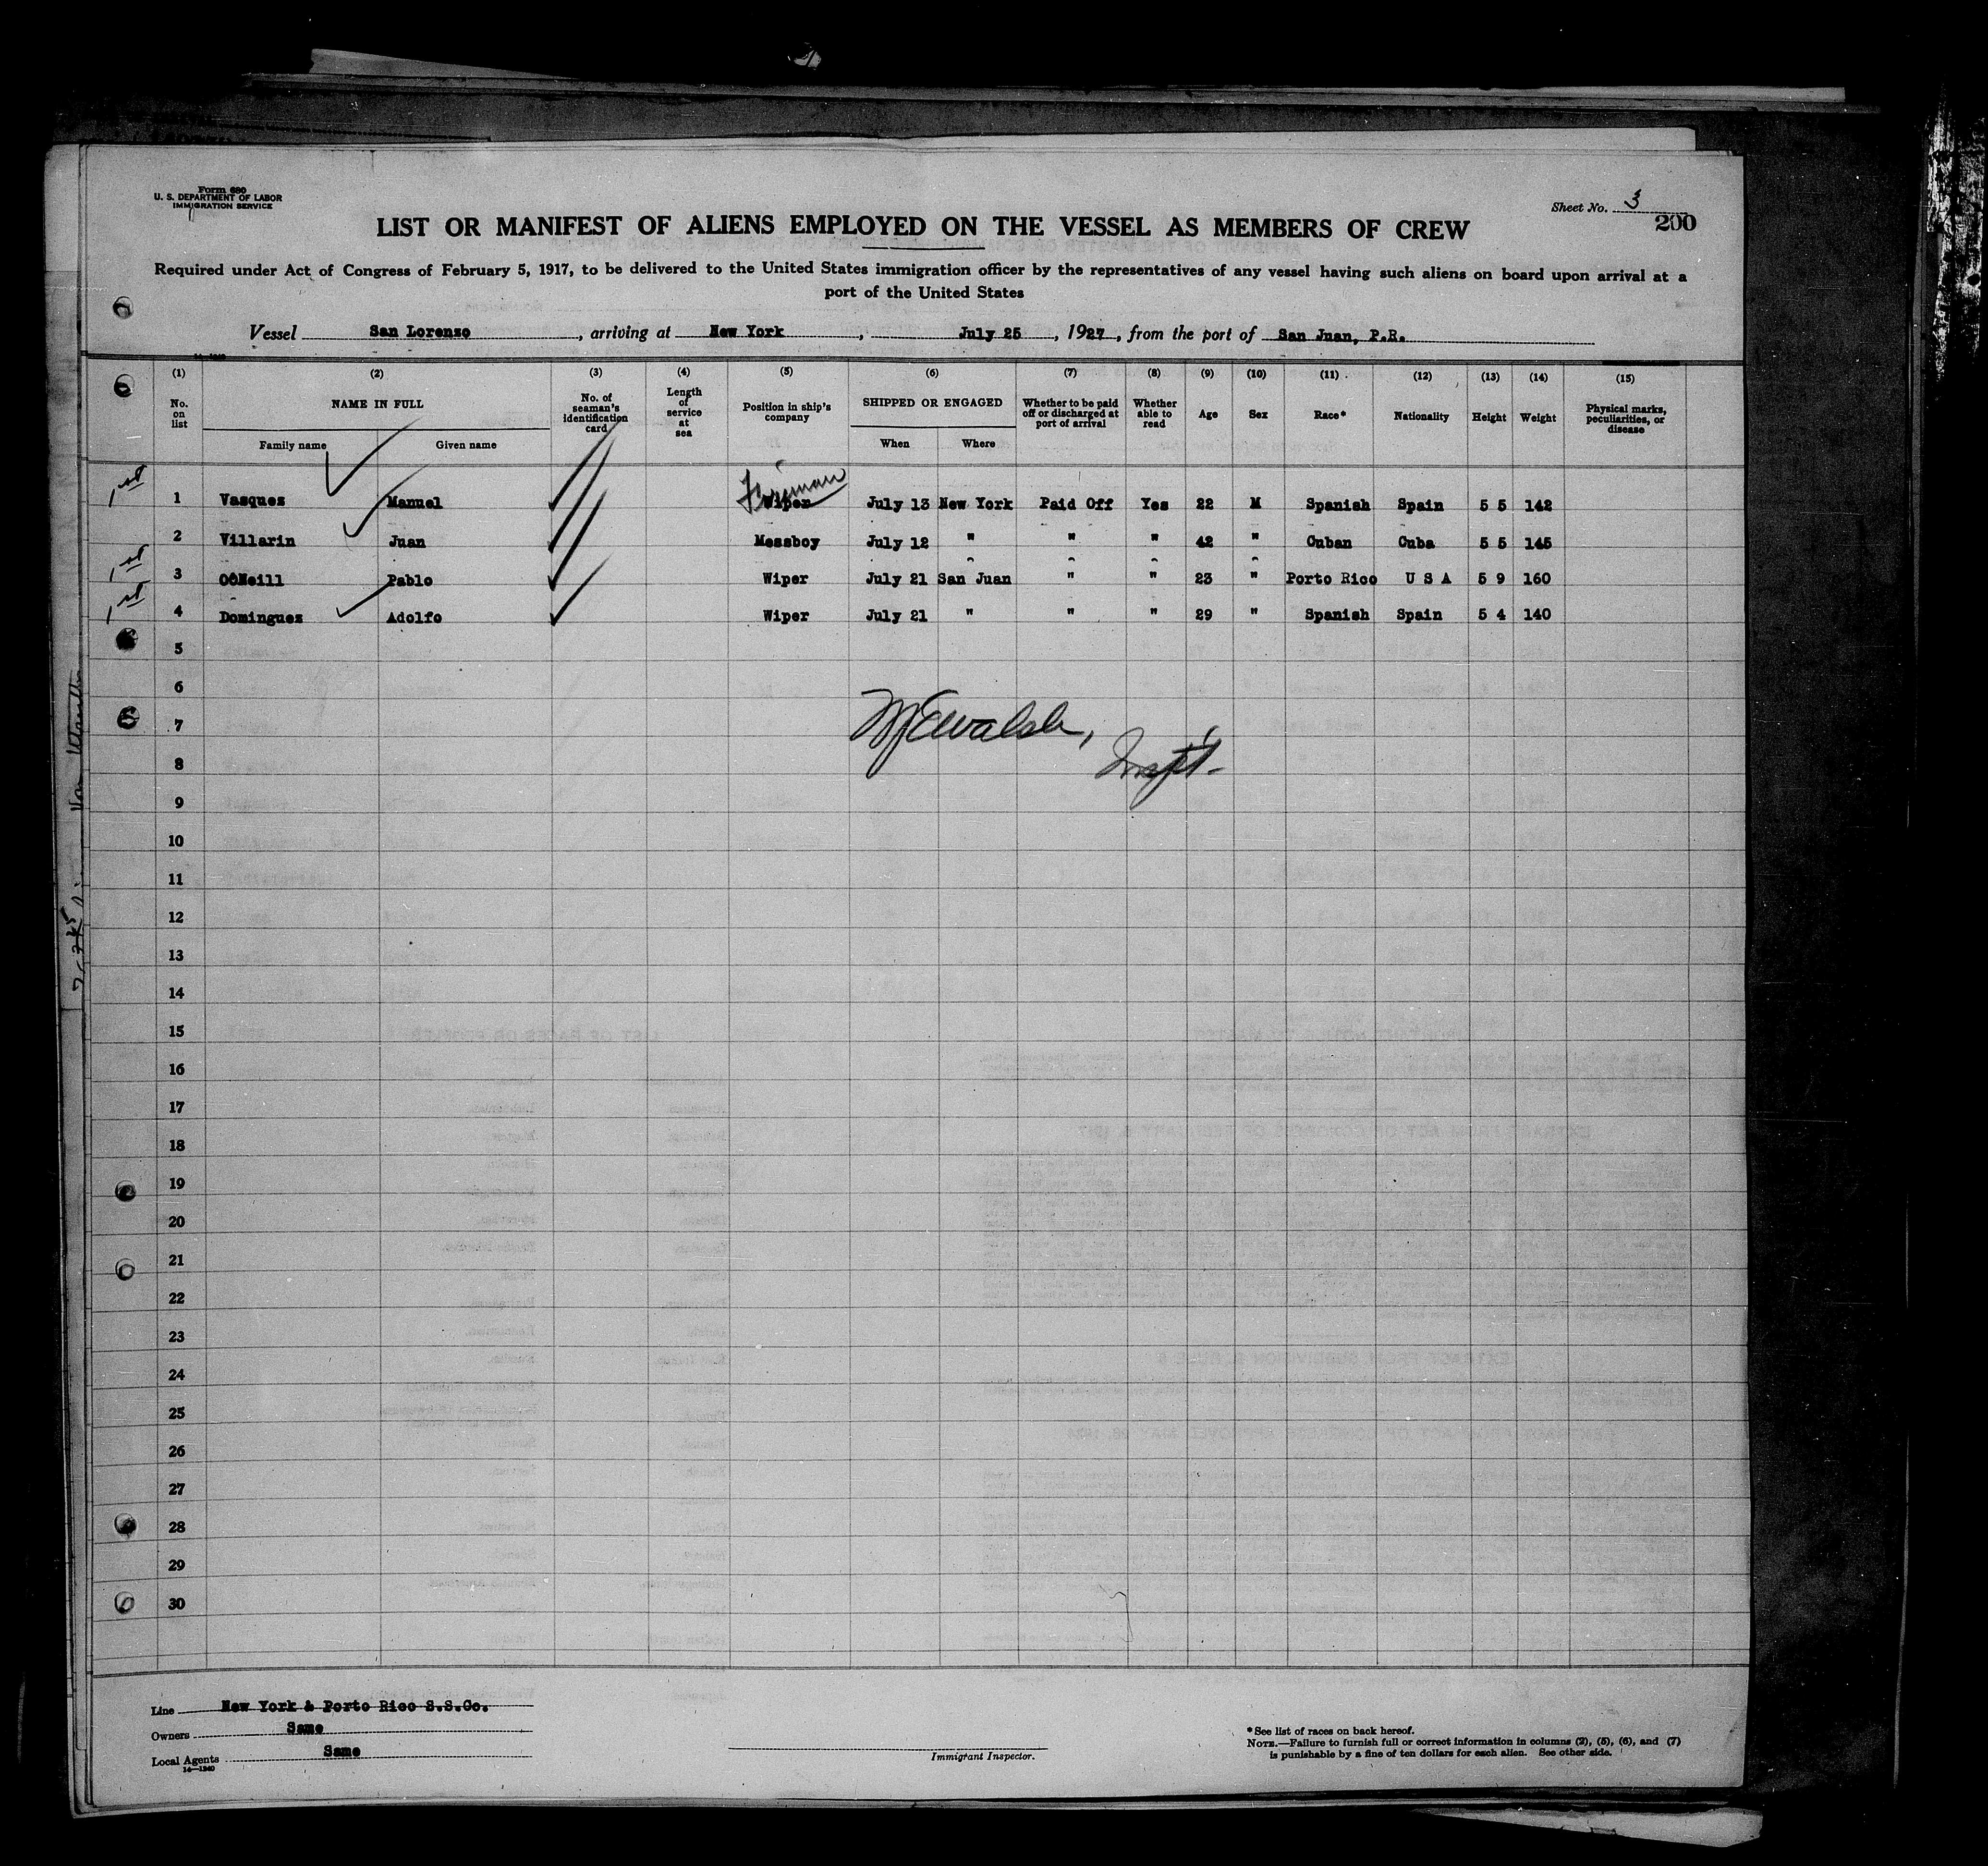 Form 680
U. S. DEPARTMENT OF LABOR
IMMIGRATION SERVICE
Sheet No. 3
200
LIST OR MANIFEST OF ALIENS EMPLOYED ON THE VESSEL AS MEMBERS OF CREW
Required under Act of Congress of February 5, 1917, to be delivered to the United States immigration officer by the representatives of any vessel having such aliens on board upon arrival at a
port of the United States
Vessel San Lorenzo, arriving at New York, July 25, 1927, from the port of San Juan, P.R.
(1) No. on list (2) NAME IN FULL Family name Given name (3) No. of seaman's identification card (4) Length of service at sea (5) Position in ship's company (6) SHIPPED OR ENGAGED When Where (7) Whether to be paid off or discharged at port of arrival (8) Whether able to read (9) Age (10) Sex (11) Race* (12) Nationality (13) Height (14) Weight (15) Physical marks, peculiarities, or disease
1st 1 Vasquez Manuel Wiper Fireman July 13 New York Paid Off Yes 22 M Spanish Spain 5 5 142
2 Villarin Juan Messboy July 12 " " " 42 " Cuban Cuba 5 5 145
1st 3 OŃeill Pablo Wiper July 21 San Juan " " 23 " Porto Rico U S A 5 9 160
1st 4 Dominguez Adolfo Wiper July 21 " " " 29 " Spanish Spain 5 4 140
5
6
7
McWalsh,
8
Insp't.
9
10
11
12
13
14
15
16
17
18
19
20
21
22
23
24
25
26
27
28
29
30
Line New York & Porto Rico S.S.Co.
Owners Same
Local Agents Same
14—1240
Immigrant Inspector.
*See list of races on back hereof.
NOTE.—Failure to furnish full or correct information in columns (2), (5), (6), and (7)
is punishable by a fine of ten dollars for each alien. See other side.